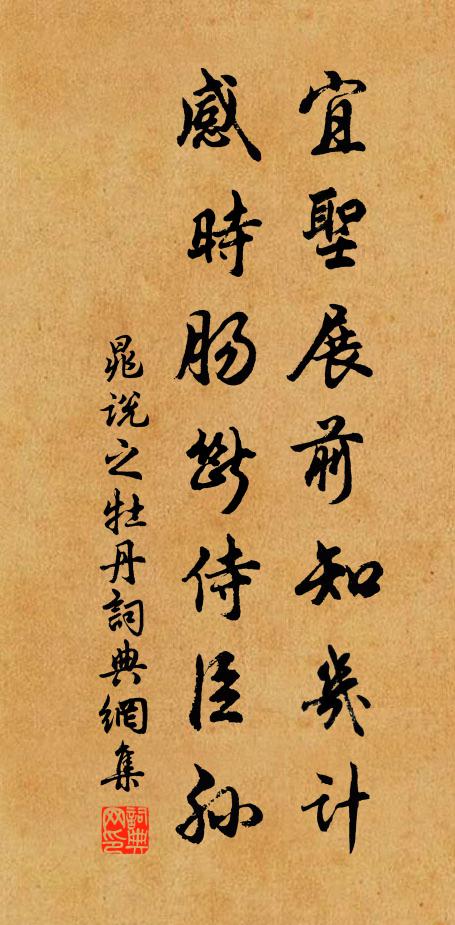 宜聖展前知幾計
感時肠斷侍臣孫
晁説之牡丹詞典網集
詞典网印